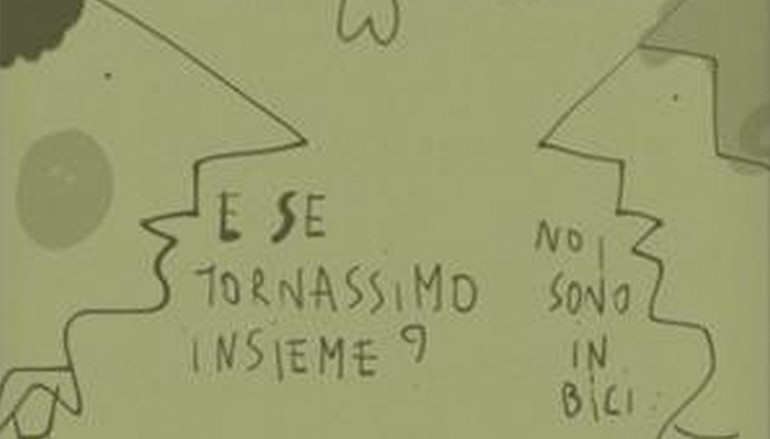 E SE
TORNASSIMO
INSIEME?
NOI
SONO
IN
BICI